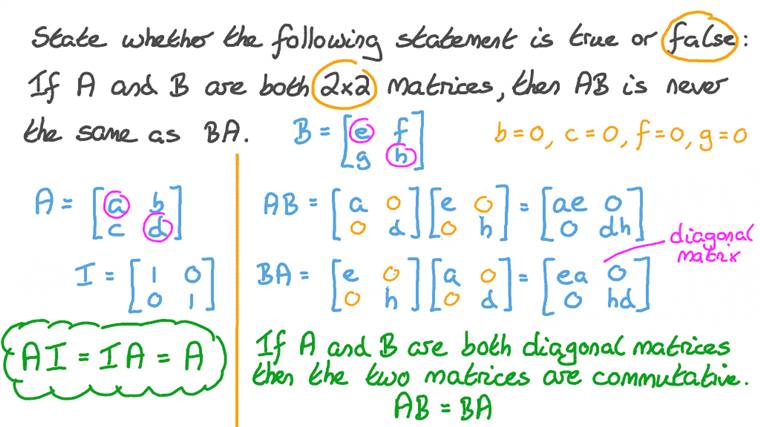 State whether the following statement is true or false:
If A and B are both 2×2 matrices, then AB is never
the same as BA.
B = [e f
g h]
b=0, c=0, f=0, g=0
A = [a b
c d]
I = [1 0
0 1]
AI = IA = A
AB = [a 0 [e 0 = [ae 0
0 d] 0 h] 0 dh]
BA = [e 0 [a 0 = [ea 0
0 h] 0 d] 0 hd]
diagonal
matrix
If A and B are both diagonal matrices
then the two matrices are commutative.
AB = BA